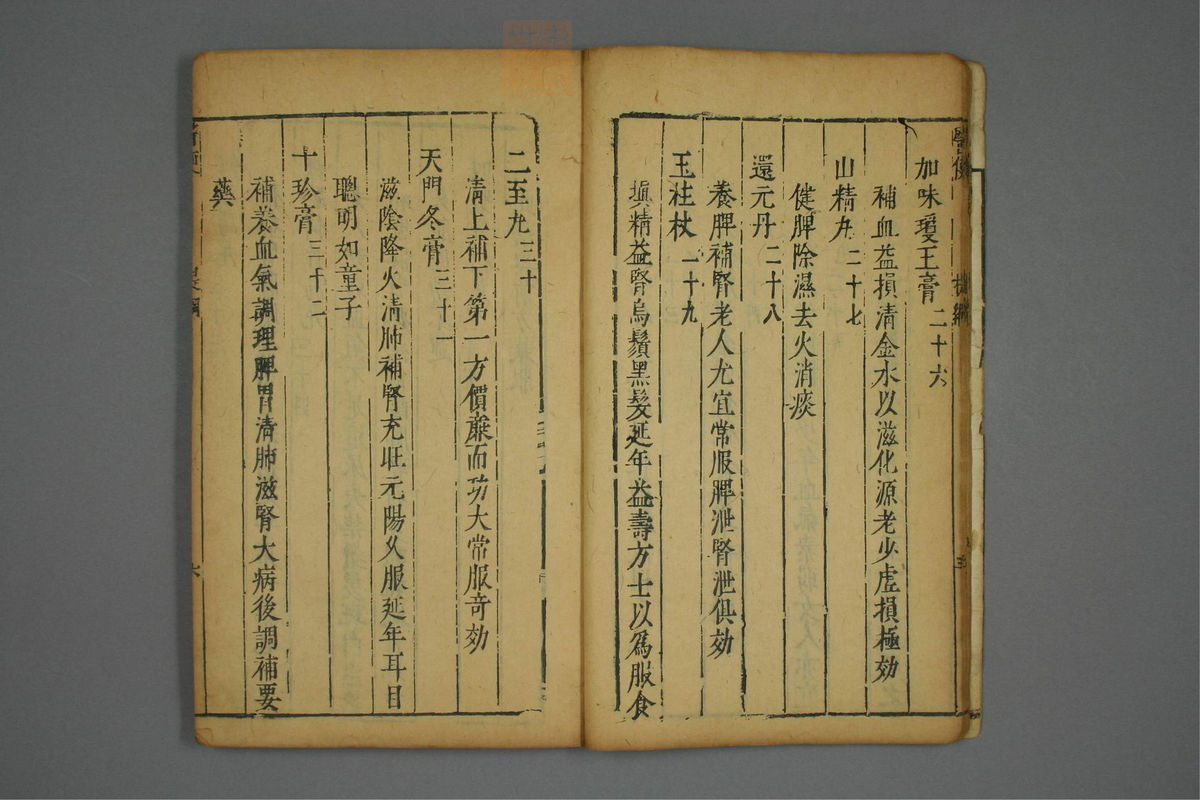 加味瓊玉膏二十六
補血益損清金水以滋化源老少虛損極効
山精丸二十七
健脾除濕去火消痰
還元丹二十八
養脾補腎老人尤宜常服脾泄腎泄俱効
玉柱杖二十九
塡精益腎烏鬚黑髮延年益壽方士以爲服食
二至丸三十
清上補下第一方價亷而功大常服奇効
天門冬膏三十一
滋陰降火清肺補腎充旺元陽乆服延年耳目
聰明如童子
十珍膏三十二
補養血氣調理脾胃清肺滋腎大病後調補要
藥